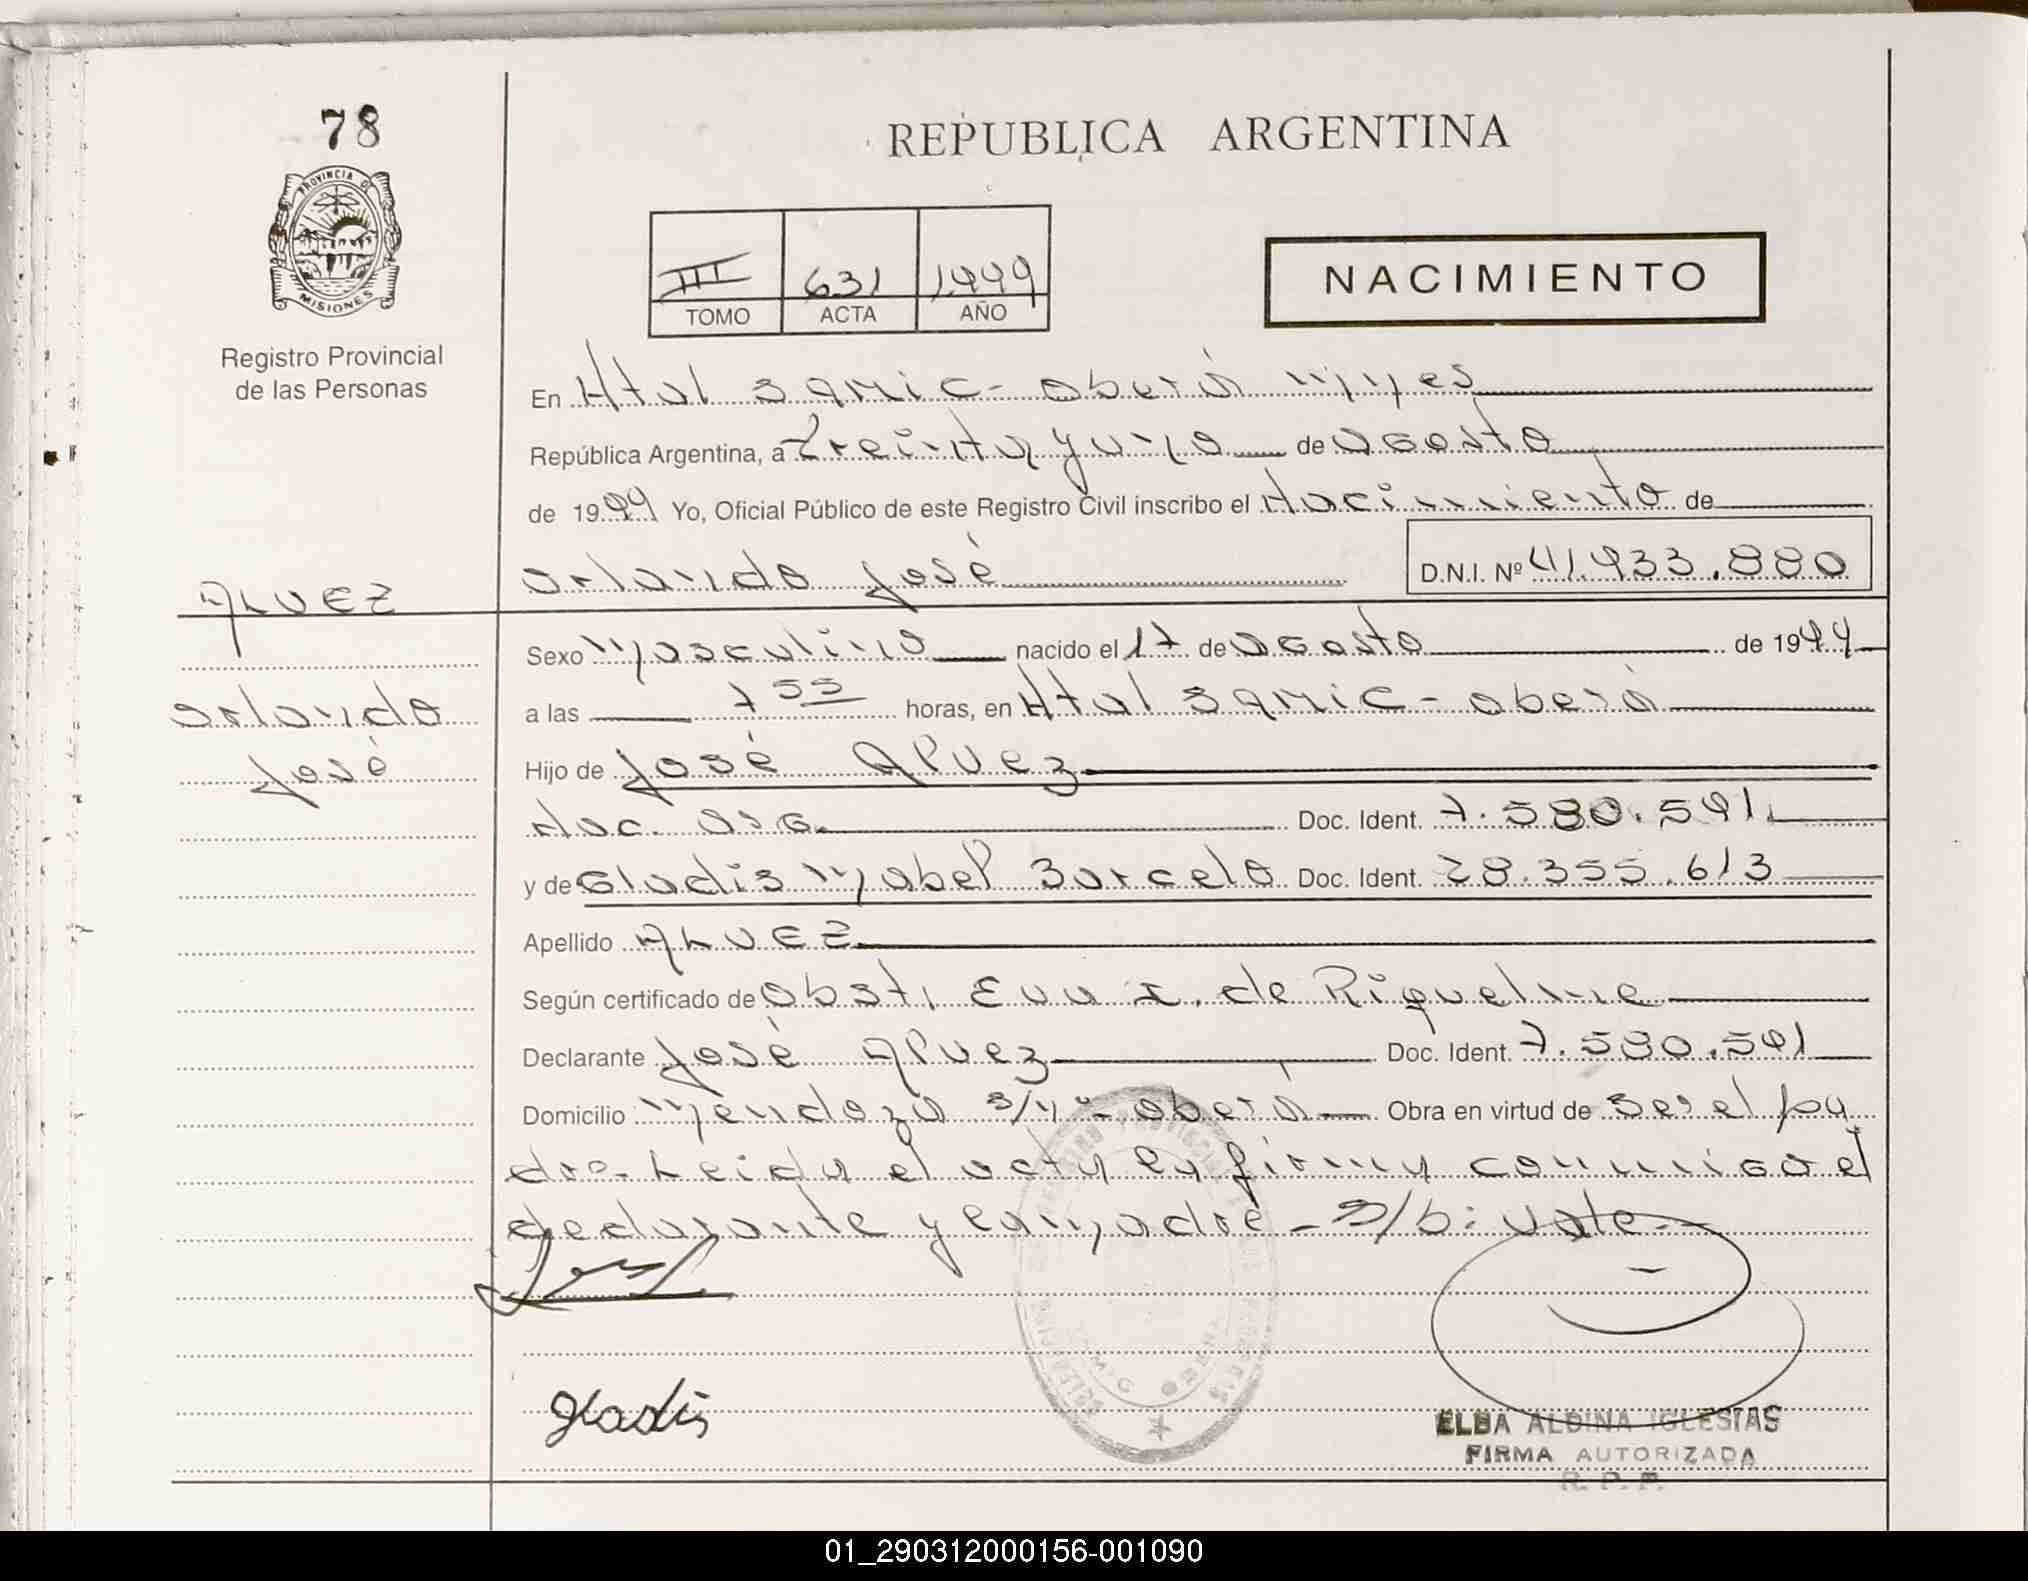 78
REPUBLICA ARGENTINA
PROVINCIA DE
MISIONES
Registro Provincial
de las Personas
III 631 1.999
TOMO ACTA AÑO
NACIMIENTO
En Htal Samic - Oberá Mnes
República Argentina, a treinta y uno de agosto
de 1999 Yo, Oficial Público de este Registro Civil inscribo el Nacimiento de
Orlando José D.N.I. Nº 41.933.880
ALVEZ
Orlando
José
Sexo Masculino nacido el 17 de agosto de 1999
a las 7 55 horas, en Htal Samic - Oberá
Hijo de José Alvez
Nac. arg. Doc. Ident. 7.580.591
y de Gladis Mabel Barcelo Doc. Ident. 28.355.613
Apellido ALVEZ
Según certificado de Obst. Eva I. de Riquelme
Declarante José Alvez Doc. Ident. 7.580.591
Domicilio Mendoza s/nº Oberá Obra en virtud de ser el pa
dre. Leida el acta la firma conmigo el
declarante y la madre - S/b: vale.-
Gladis
ELBA ALDINA IGLESIAS
FIRMA AUTORIZADA
R. P. P.
01_290312000156-001090